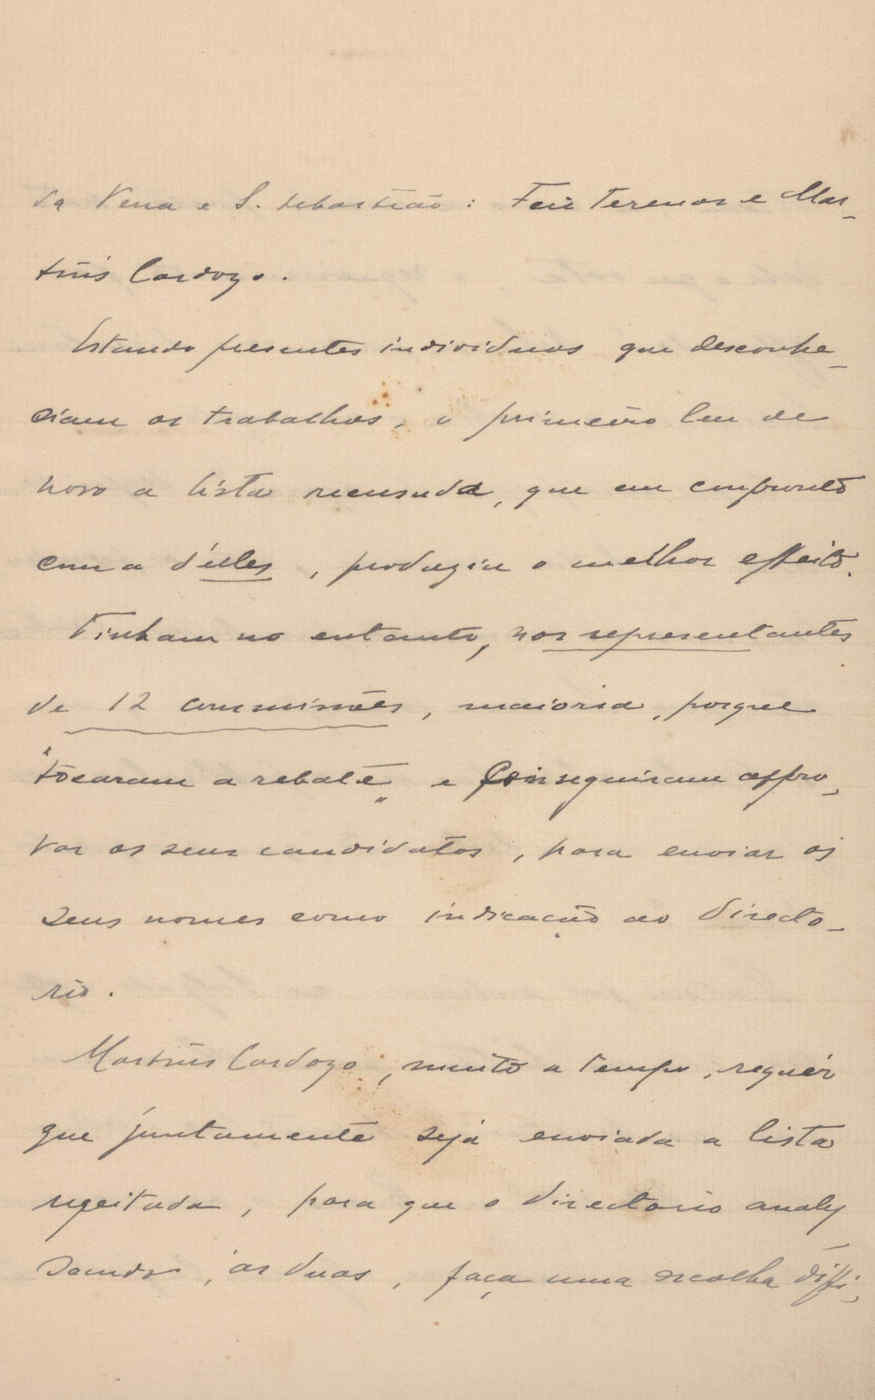 da Pena e S. Sebastião: Feio Terenas e Mar-
tins Cardozo.
Estando presentes individuos que desconhe-
ciam os trabalhos, o primeiro leu de
novo a lista recusada, que em confronto
com a d'elles, produziu o melhor effeito.
Tinham no entanto, nos representantes
de 12 commissões, maioria, porque
"tocaram a rebate" e conseguiram appro-
var os seus candidatos, para enviar os
seus nomes como indicação ao Directo-
rio.
Martins Cardozo, muito a tempo, requér
que juntamente seja enviada a lista
regeitada, para que o directorio analy
sando, as duas, faça uma escolha diffi-